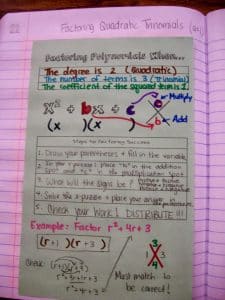 Factoring Quadratic Trinomials (a=1)
Factoring Polynomials When...
The degree is 2 (Quadratic)
The number of terms is 3 (Trinomial)
The coefficient of the squared term is 1.
x² + bx + c
Multiply
c
(x )(x )
b
Add
Steps to Factoring Success
1. Draw your parentheses + fill in the variable
2. In the X puzzle: place "b" in the addition
spot and "c" in the multiplication spot
3. What will the signs be?
4. Solve the X-puzzle + place your answer in
5. Check your work! DISTRIBUTE!!!
Example: Factor r² + 4r + 3
(r+1)(r+3)
3
4
Check: (r+1)(r+3)
r²+3r+1r+3
r²+4r+3
Must match to
be correct!